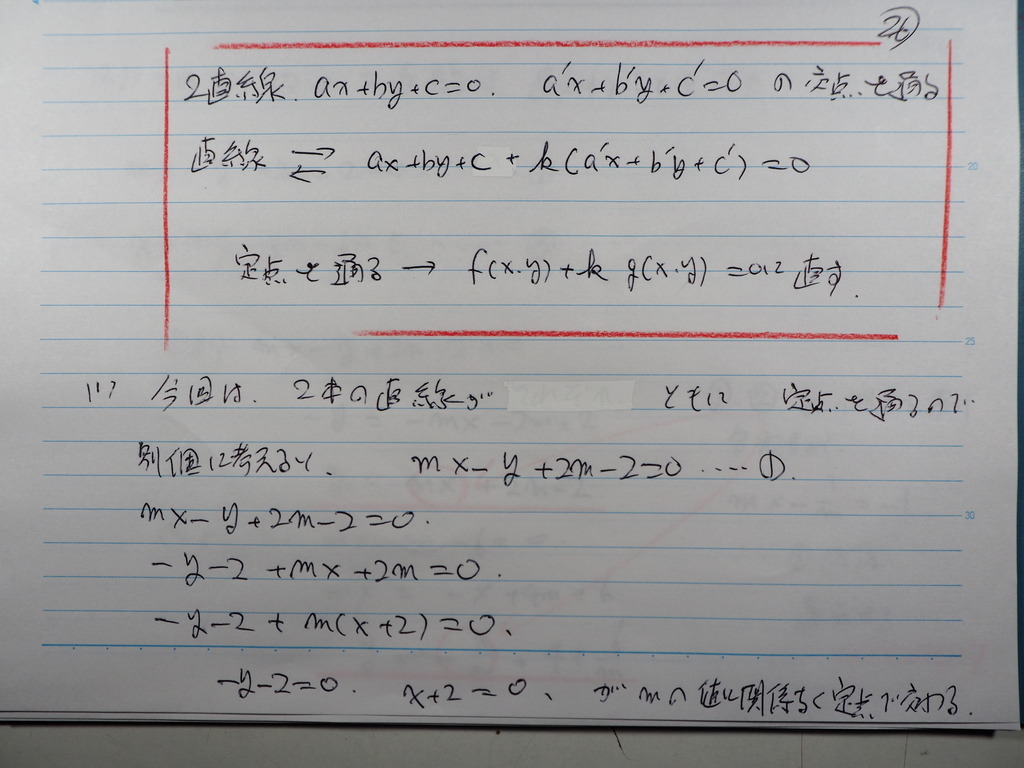 26
2直線 ax+by+c=0. a'x+b'y+c'=0 の交点を通る
直線 ⇄ ax+by+c + k(a'x+b'y+c')=0
定点を通る → f(x.y)+k g(x.y)=0に直す.
今回は. 2本の直線が ともに 定点を通るので
別個に考えると、 mx-y+2m-2=0 ....①.
mx-y+2m-2=0.
-y-2+mx+2m=0.
-y-2+m(x+2)=0、
-y-2=0. x+2=0、 がmの値に関係なく定点で交わる.